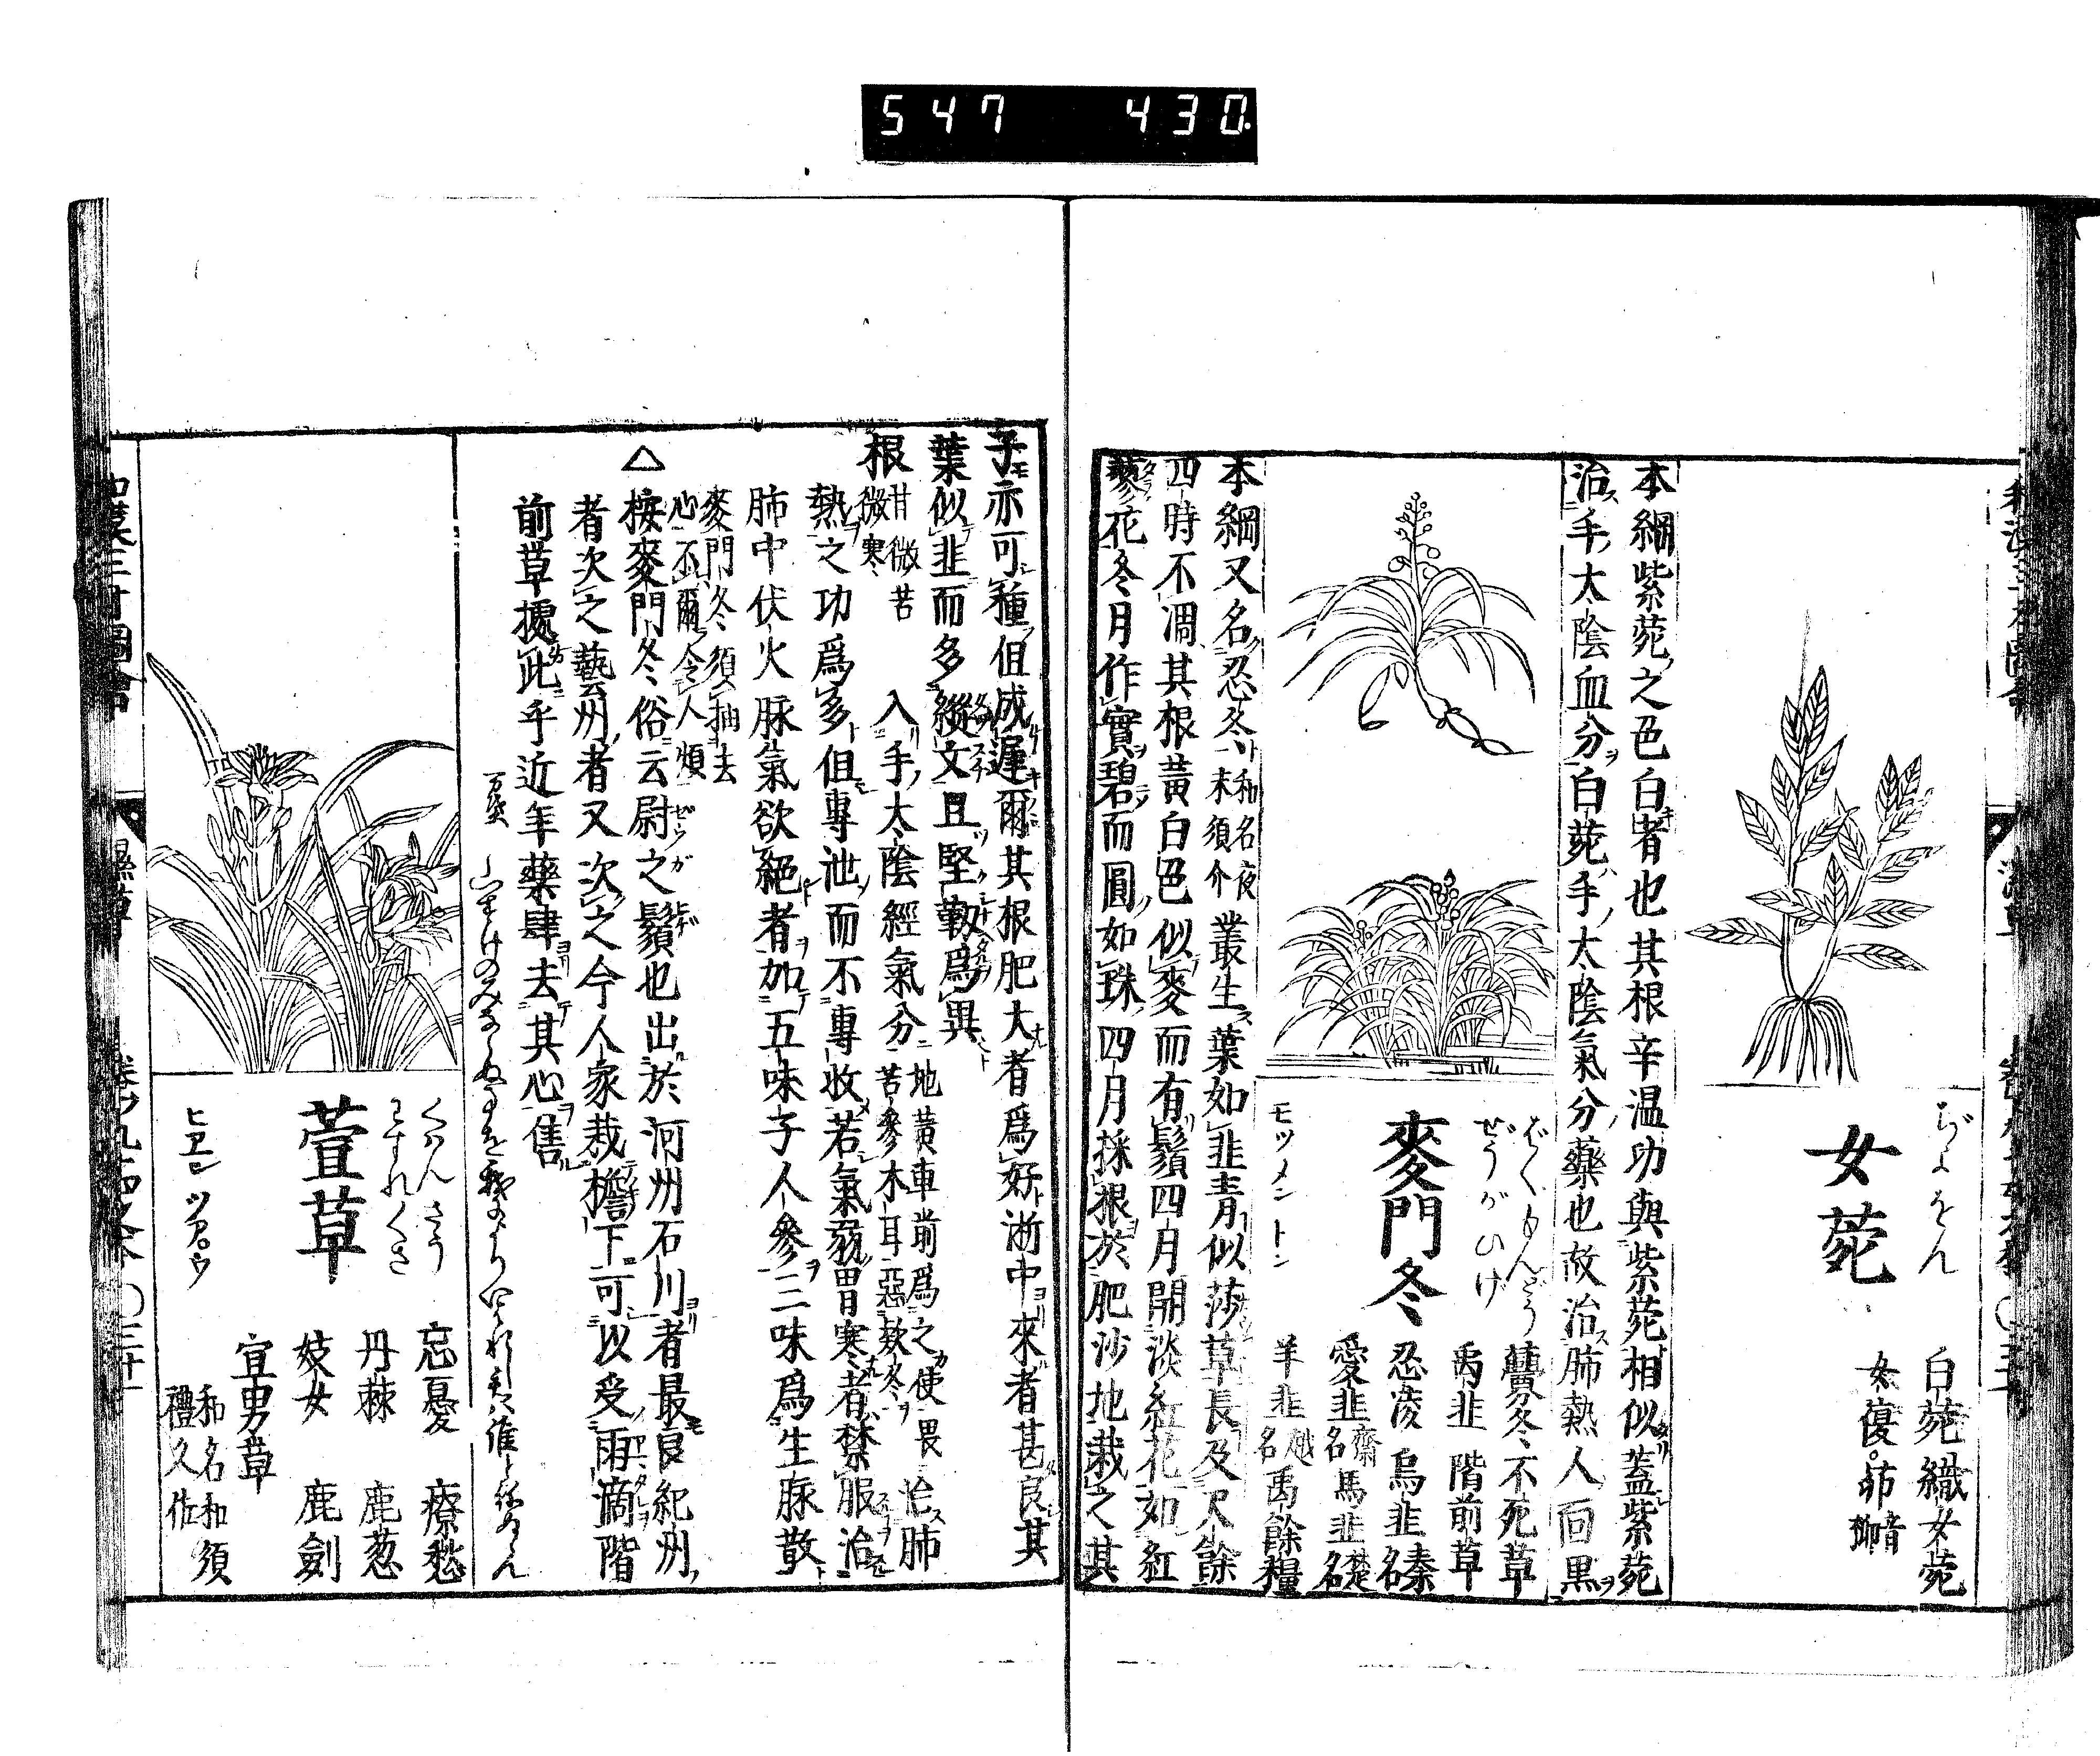 547 430
ぢよをん
女菀
白菀 織女菀
女復 茆 音柳
本綱紫菀之色白者也其根辛温功與紫菀相似蓋紫菀
治手太陰血分白菀手太陰氣分藥也故治肺熱人面黒
ばくもんどう
ぜうがひげ
麥門冬
モツメントン
虋冬 不死草
禹韭 階前草
忍凌 烏韭秦名
愛韭齊名 馬韭楚名
羊韭越名 禹餘糧
本綱又名忍冬和名夜末須介叢生葉如韭青似莎草長及尺餘
四時不凋其根黃白色似麥而有鬚四月開淡紅花如紅
蓼花冬月作實碧而圓如珠四月採根於肥沙地栽之其
子亦可種但成遲爾其根肥大者爲好浙中來者甚良其
葉似韭而多縱文且堅靱爲異
根 甘微苦微寒 入手太陰經氣分 地黃車前爲之使畏苦參木耳惡欵冬 治肺
熱之功爲多但專泄而不專收若氣弱胃寒者禁服治
肺中伏火脉氣欲絕者加五味子人參三味爲生脉散
麥門冬須抽去心不爾令人煩
△按麥門冬俗云尉之鬚也出於河州石川者最良紀州
者次之藝州者又次之今人家栽檐下可以受雨滴階
前草據此乎近年藥肆去其心售
くはんさう
わすれくさ
萱草
ヒエン ツアウ
忘憂 療愁
丹棘 鹿葱
妓女 鹿劍
宜男草
和名和須禮久佐